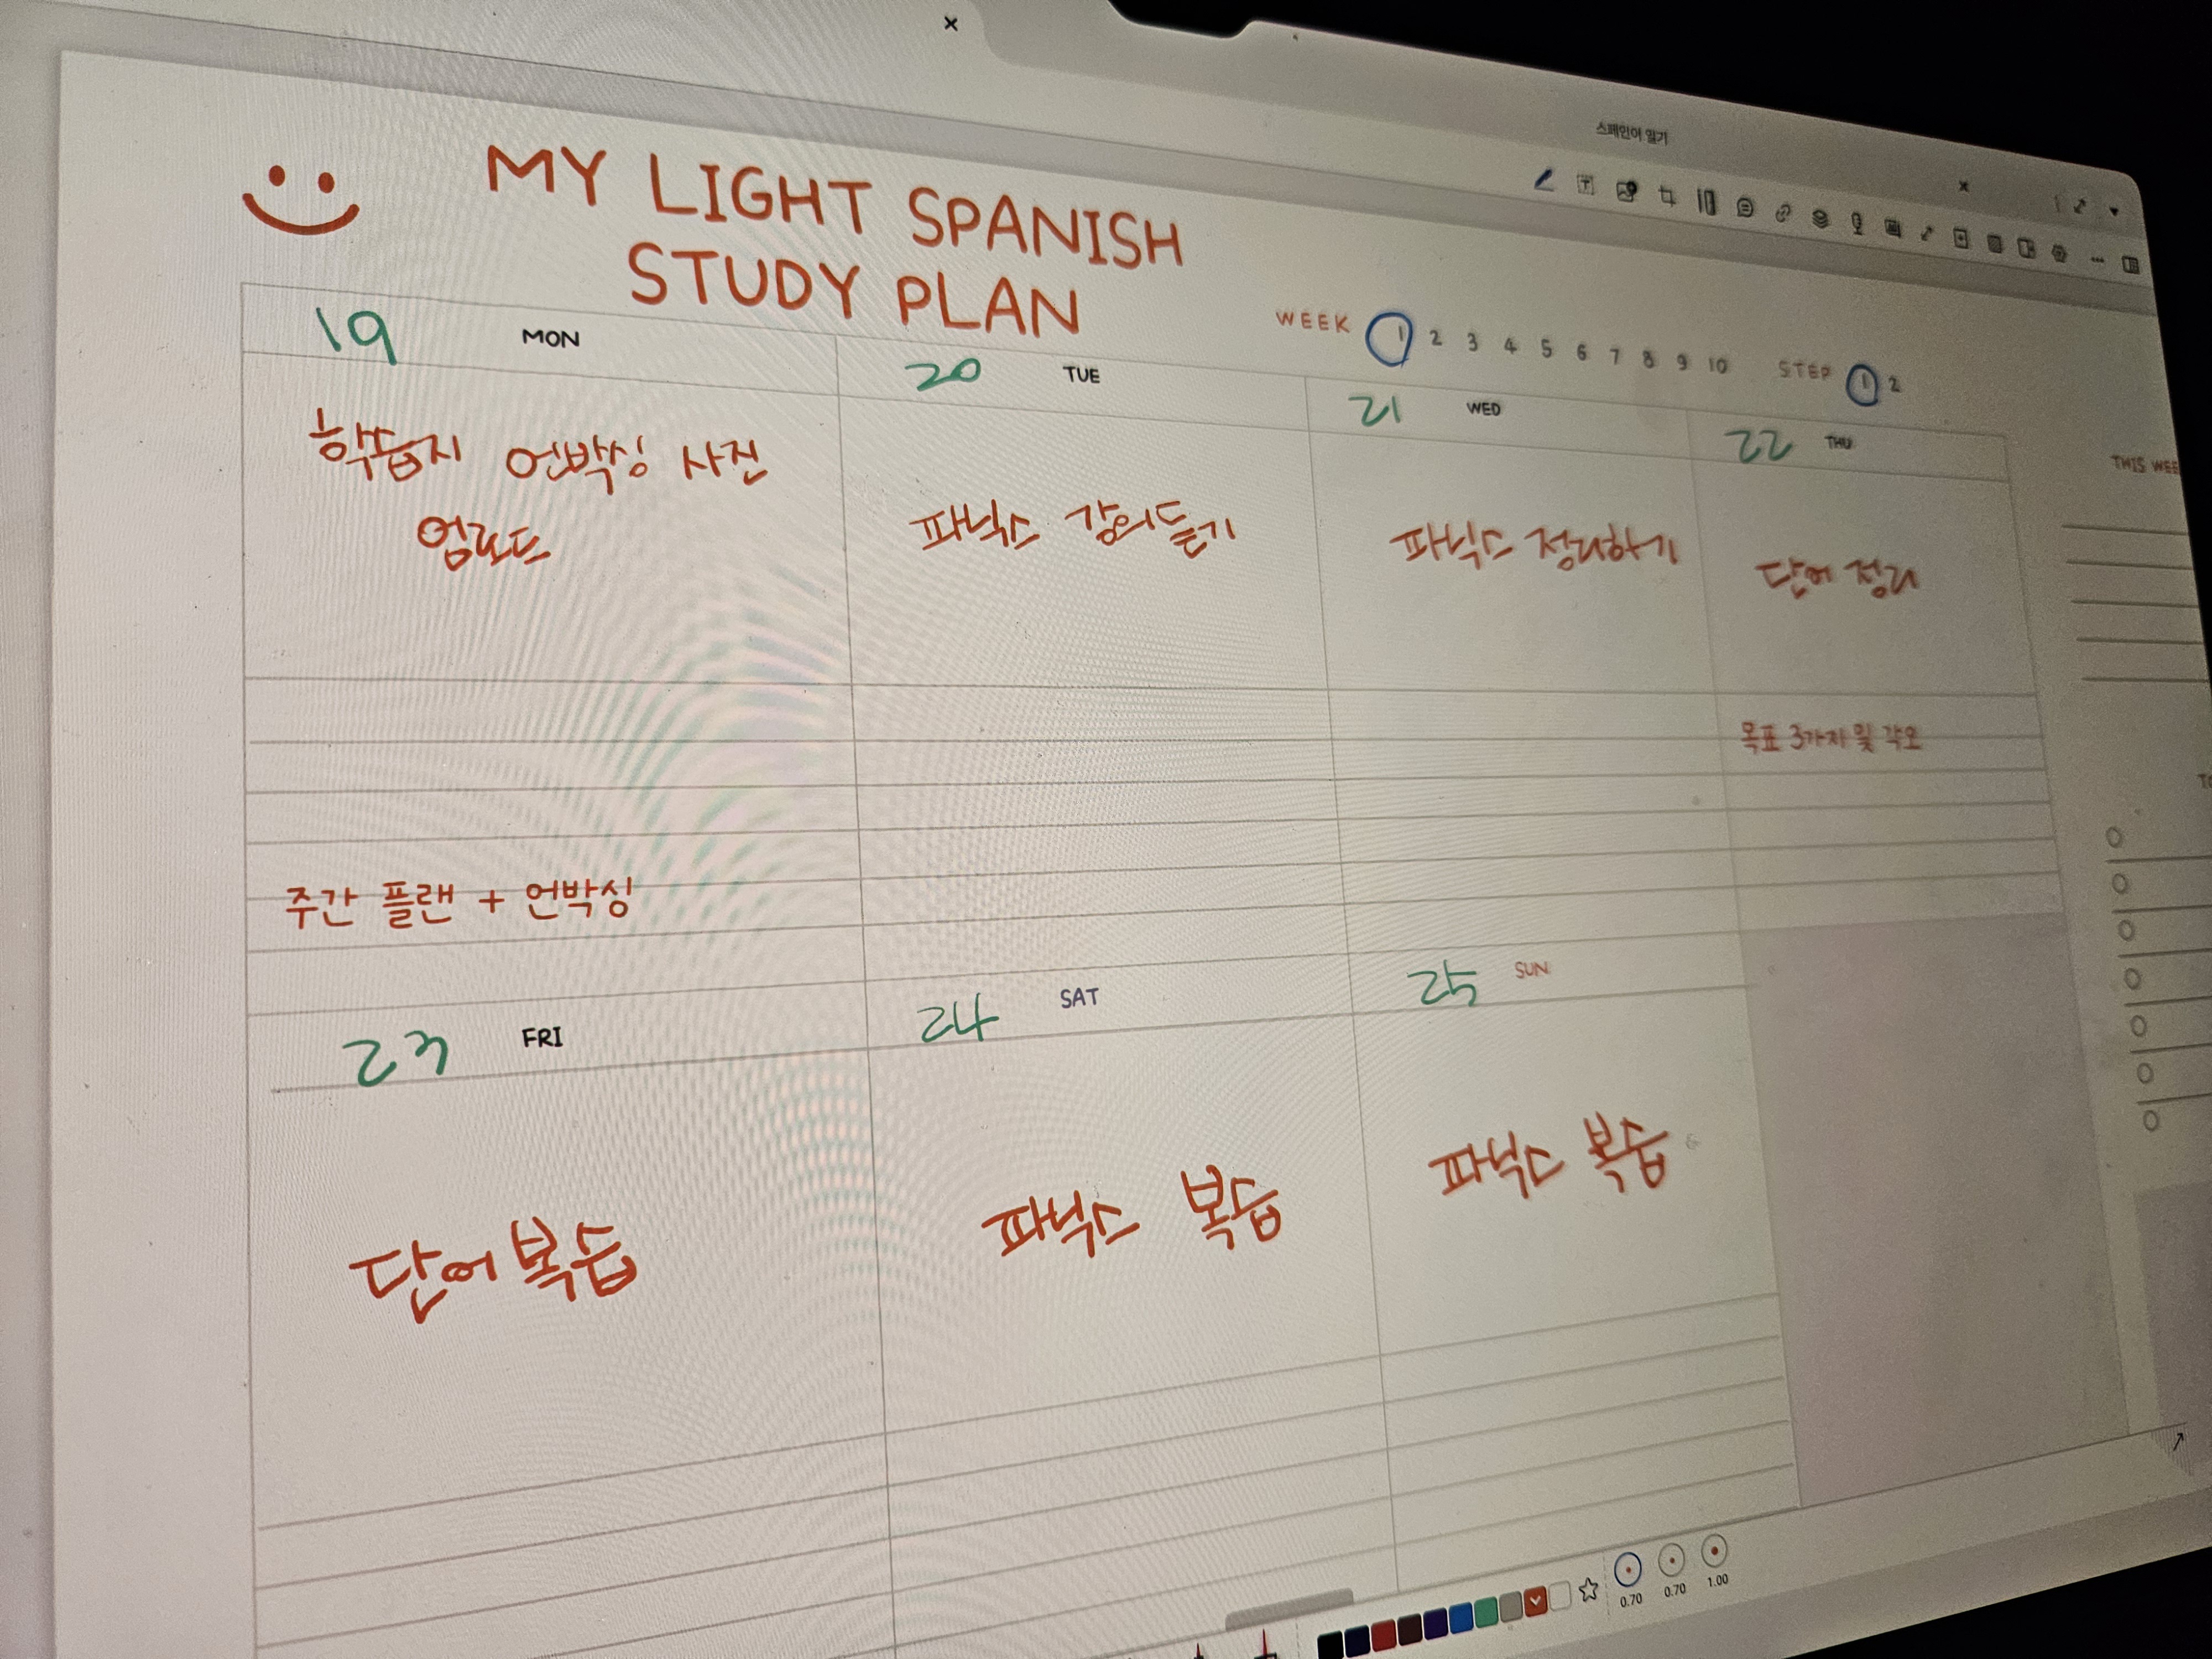 스페인어 일기
MY LIGHT SPANISH
STUDY PLAN
WEEK 1 2 3 4 5 6 7 8 9 10 STEP 1 2
19 MON
20 TUE
21 WED
22 THU
THIS WEE
학습지 언박싱 사진
업로드
파닉스 강의듣기
파닉스 정리하기
단어 정리
목표 3가지 및 각오
주간 플랜 + 언박싱
TO
23 FRI
24 SAT
25 SUN
단어복습
파닉스 복습
파닉스 복습
0.70 0.70 1.00